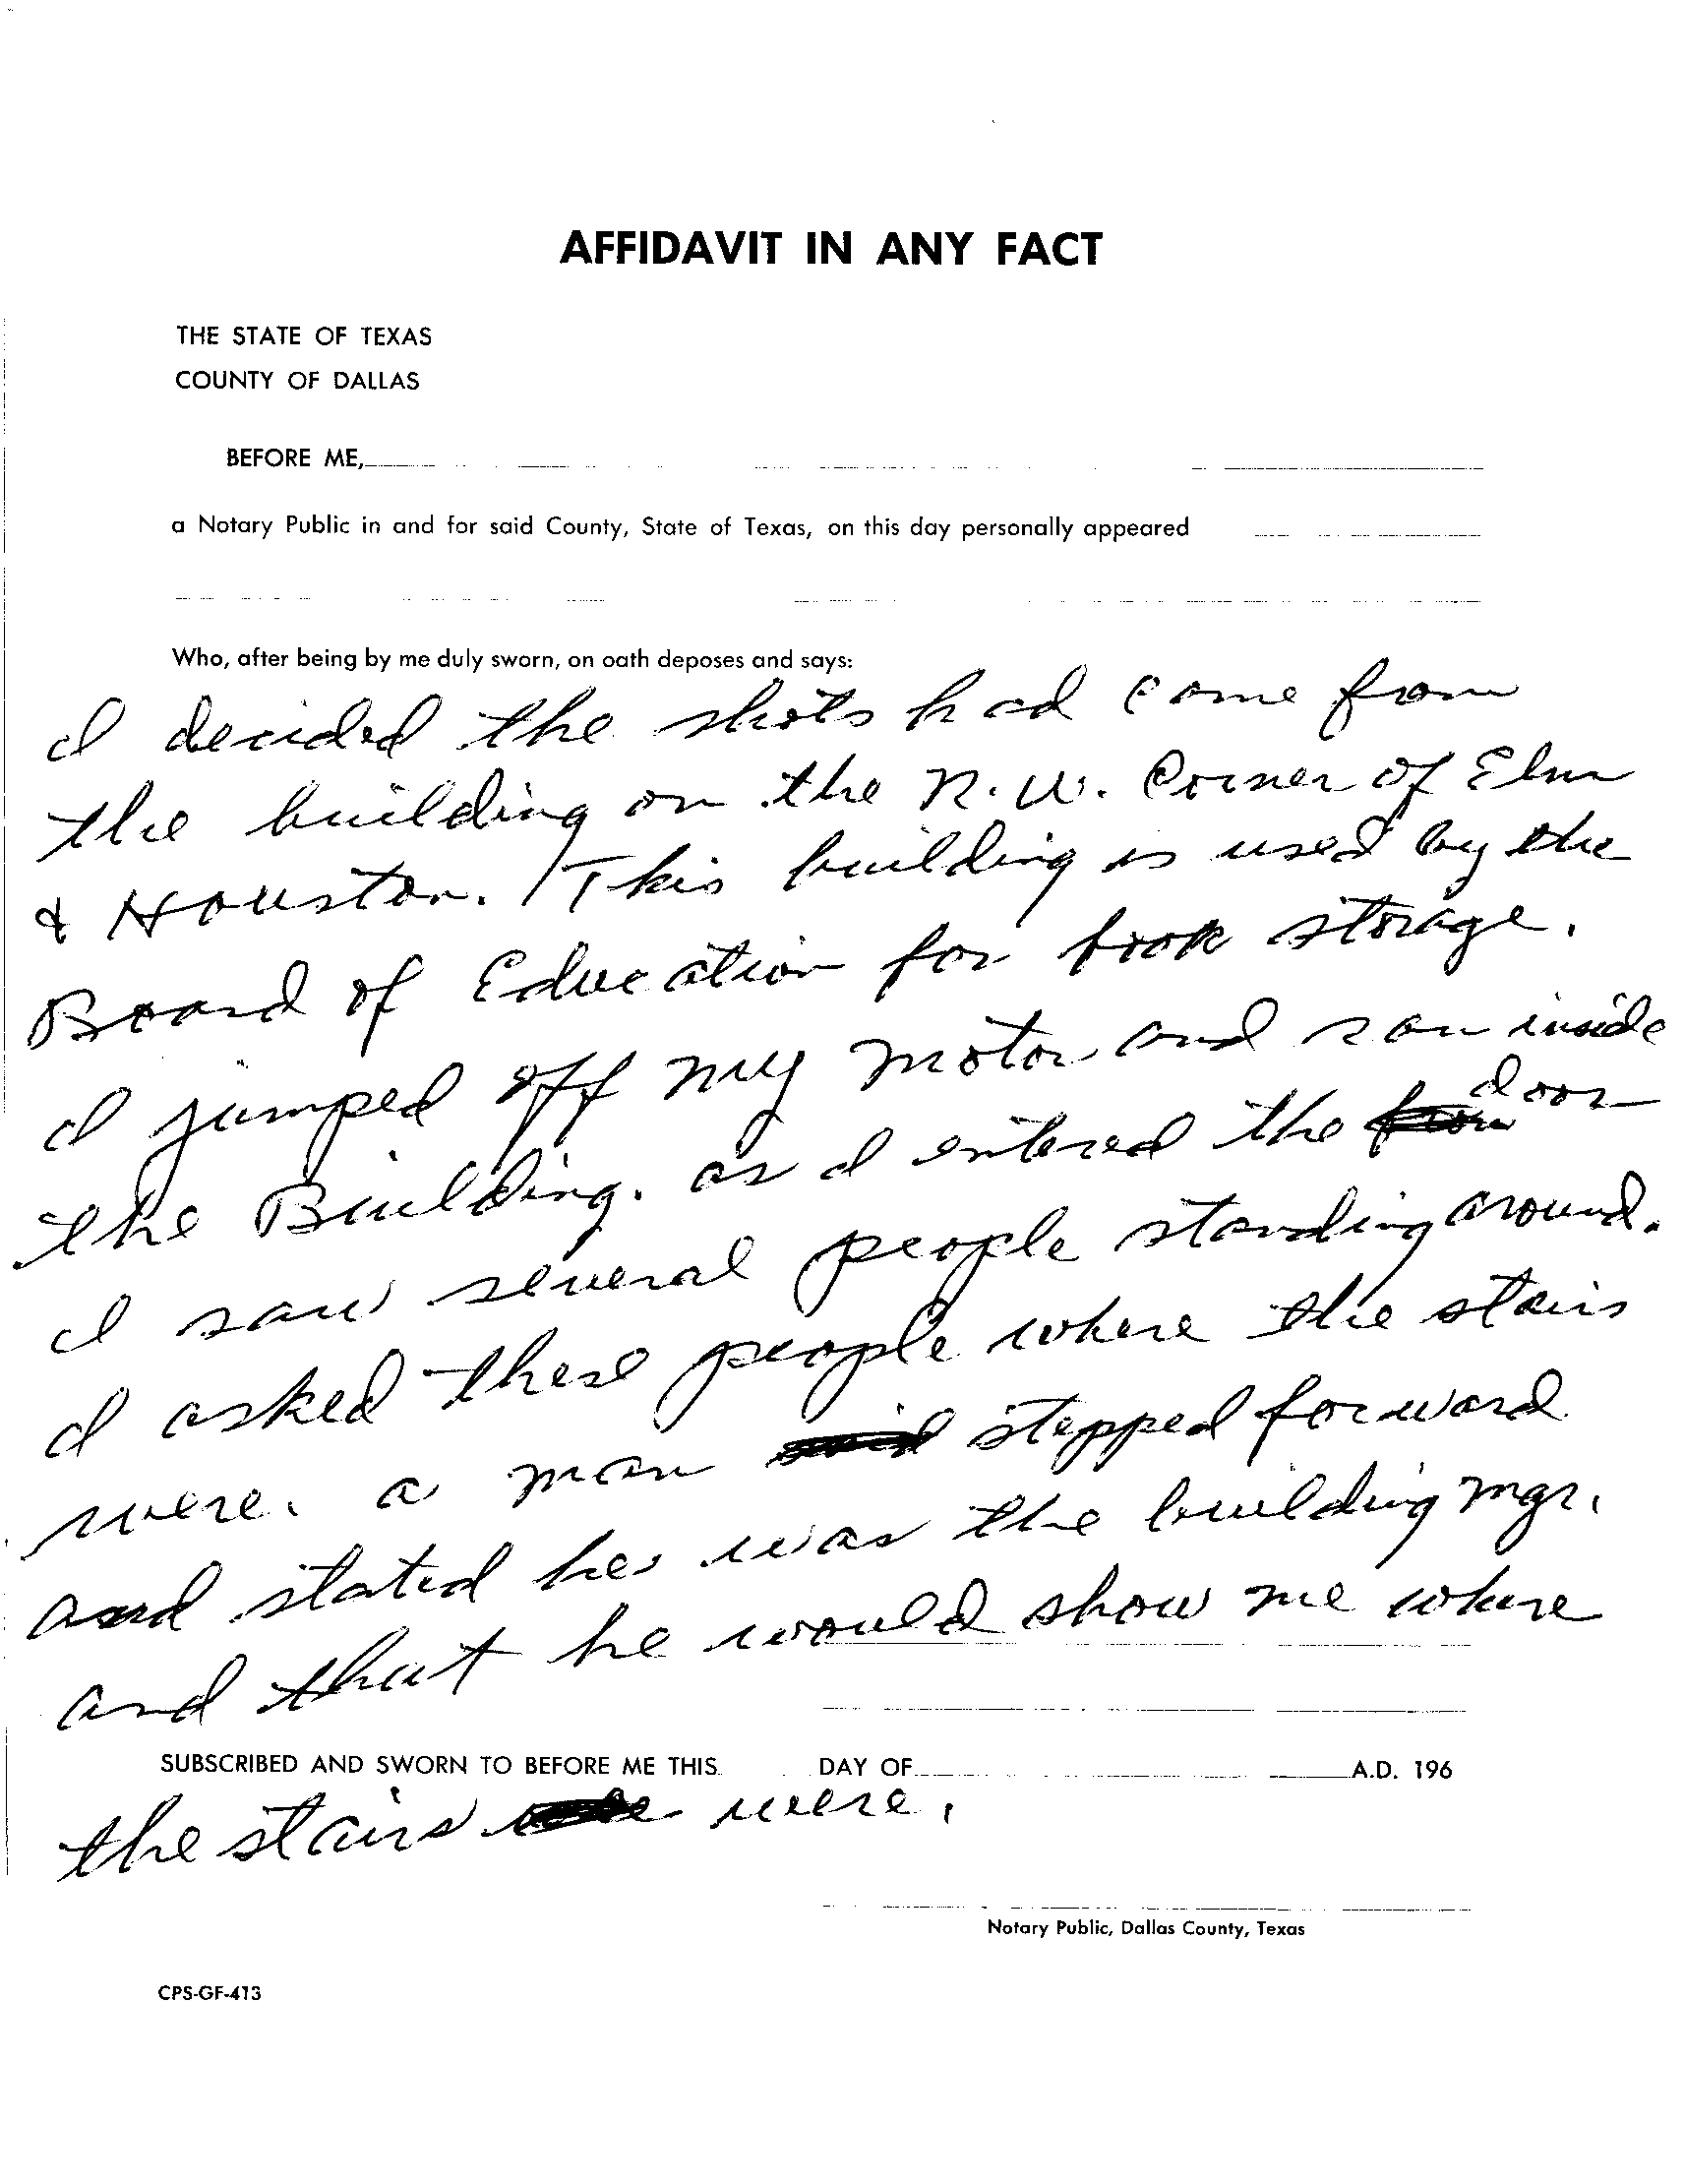 AFFIDAVIT IN ANY FACT
THE STATE OF TEXAS
COUNTY OF DALLAS
BEFORE ME,
a Notary Public in and for said County, State of Texas, on this day personally appeared
Who, after being by me duly sworn, on oath deposes and says:
I decided the shots had come from
the building on the N.W. Corner of Elm
& Houston. This building is used by the
Board of Education for book storage.
I jumped off my motor and ran inside
the Building. as I entered the door
I saw several people standing around.
I asked these people where the stairs
were. a man said stepped forward
and stated he was the building mgr.
and that he would show me where
SUBSCRIBED AND SWORN TO BEFORE ME THIS DAY OF A.D. 196
the stairs were.
Notary Public, Dallas County, Texas
CPS-GF-413